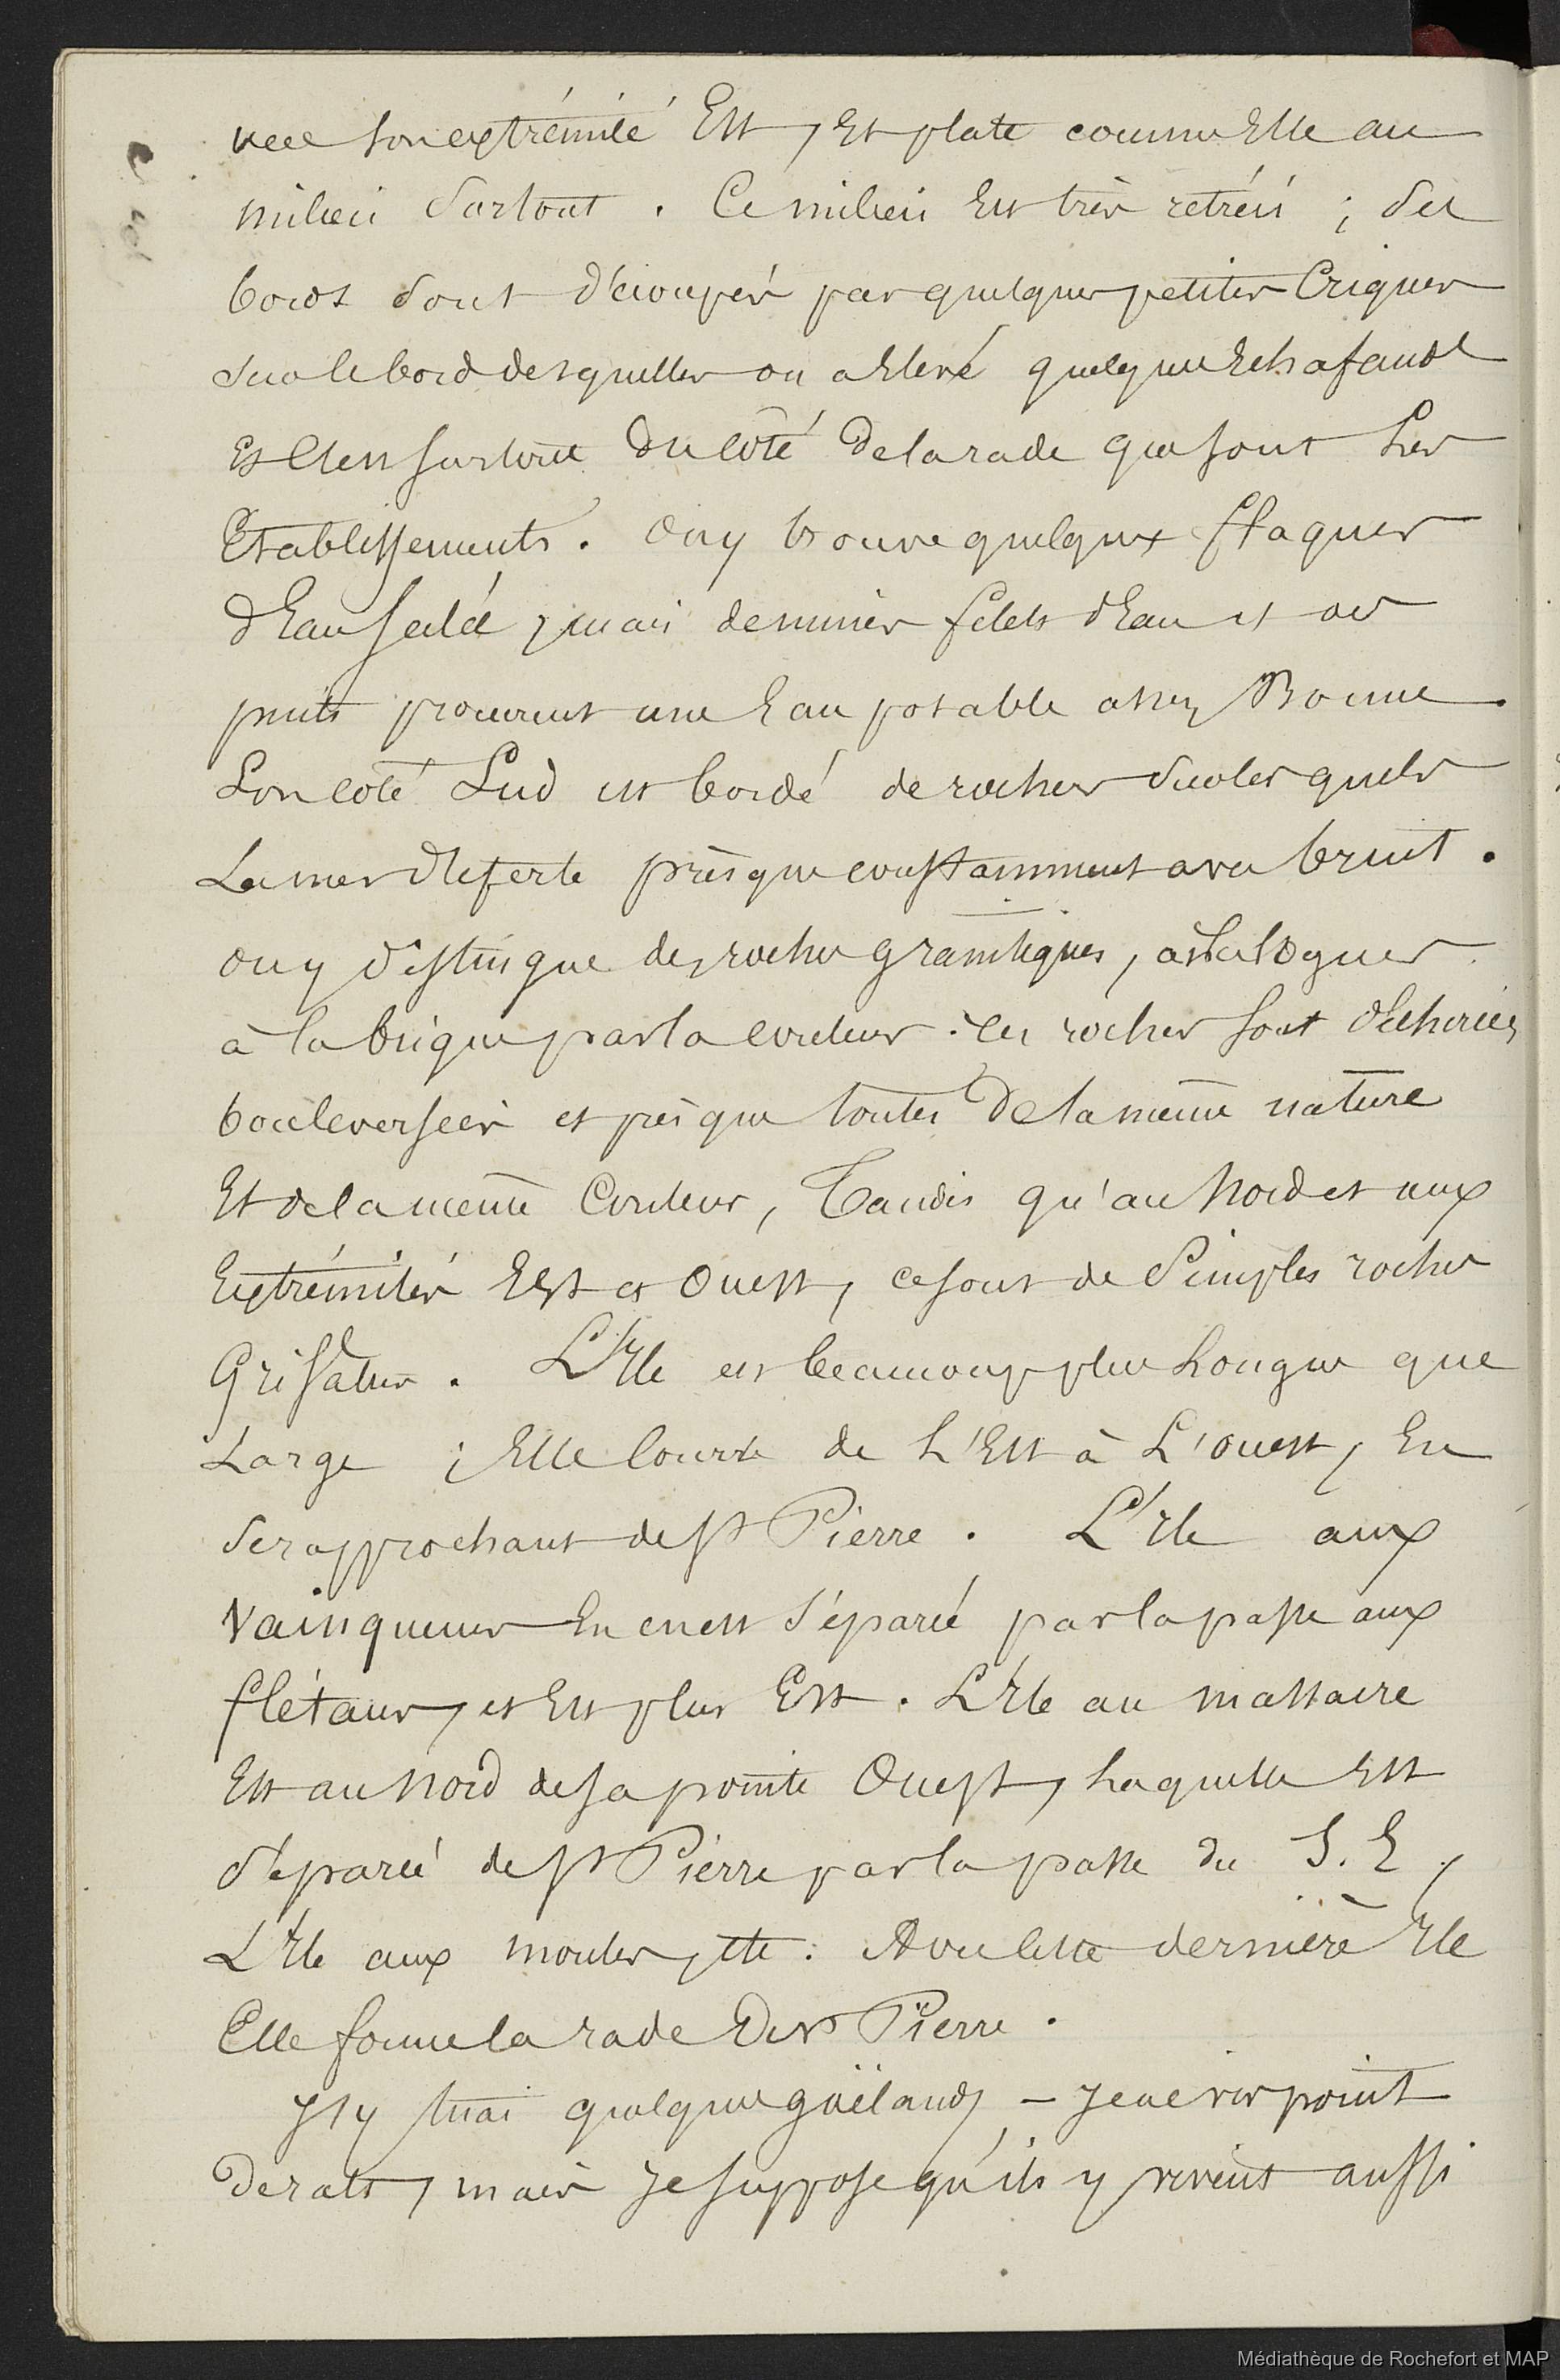 son extrémité Est, Est plate comme Elle au
milieu surtout. Ce milieu Est très rétréci ; ses
bords sont découpés par quelques petites Criques
sur le bord desquelles on a Elevé quelques Echafauds
Et C'est surtout du côté de la rade que sont Les
Etablissements. On y trouve quelques flaques
d'Eau salée, mais de minces filets d'Eau et
puits procurent une Eau potable assez Bonne.
Son côté Sud est bordé de rochers sur lesquels
La mer déferle présque constamment avec bruit.
on y distingue des roches granitiques, analogues
à la brique par la couleur. Ces roches sont déchirées,
bouleversées et présque toutes de la même nature
Et de la même Couleur, Tandis qu'au Nord et aux
Extrémités Est et Ouest, ce sont de Simples roches
Grisatres. L'Ile est beaucoup plus Longue que
Large ; Elle Court de L'Est à L'ouest, En
se rapprochant de St Pierre. L'Ile aux
Vainqueurs En est séparée par la passe aux
flétans, et Est plus Est. L'Ile au massacre
Est au Nord de sa pointe Ouest, Laquelle Est
séparée de St Pierre par la passe du S. E,
L'Ile aux moules, etc. Avec cette dernière Ile
Elle forme la rade de St Pierre.
J'y tuai quelques goëlands – Je ne vis point
de rats, mais Je suppose qu'ils y vivent aussi
Médiathèque de Rochefort et MAP